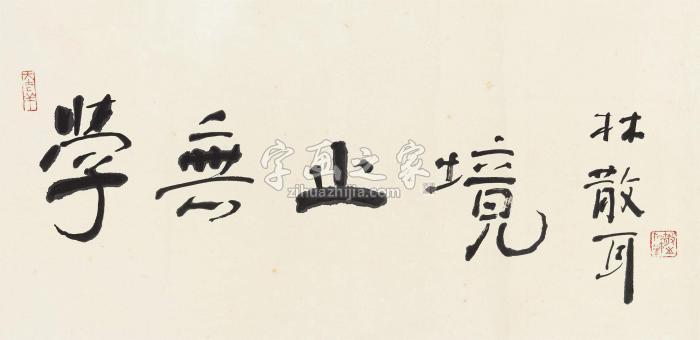 學無止境
林散耳
字画之家
zihuazhijia.com